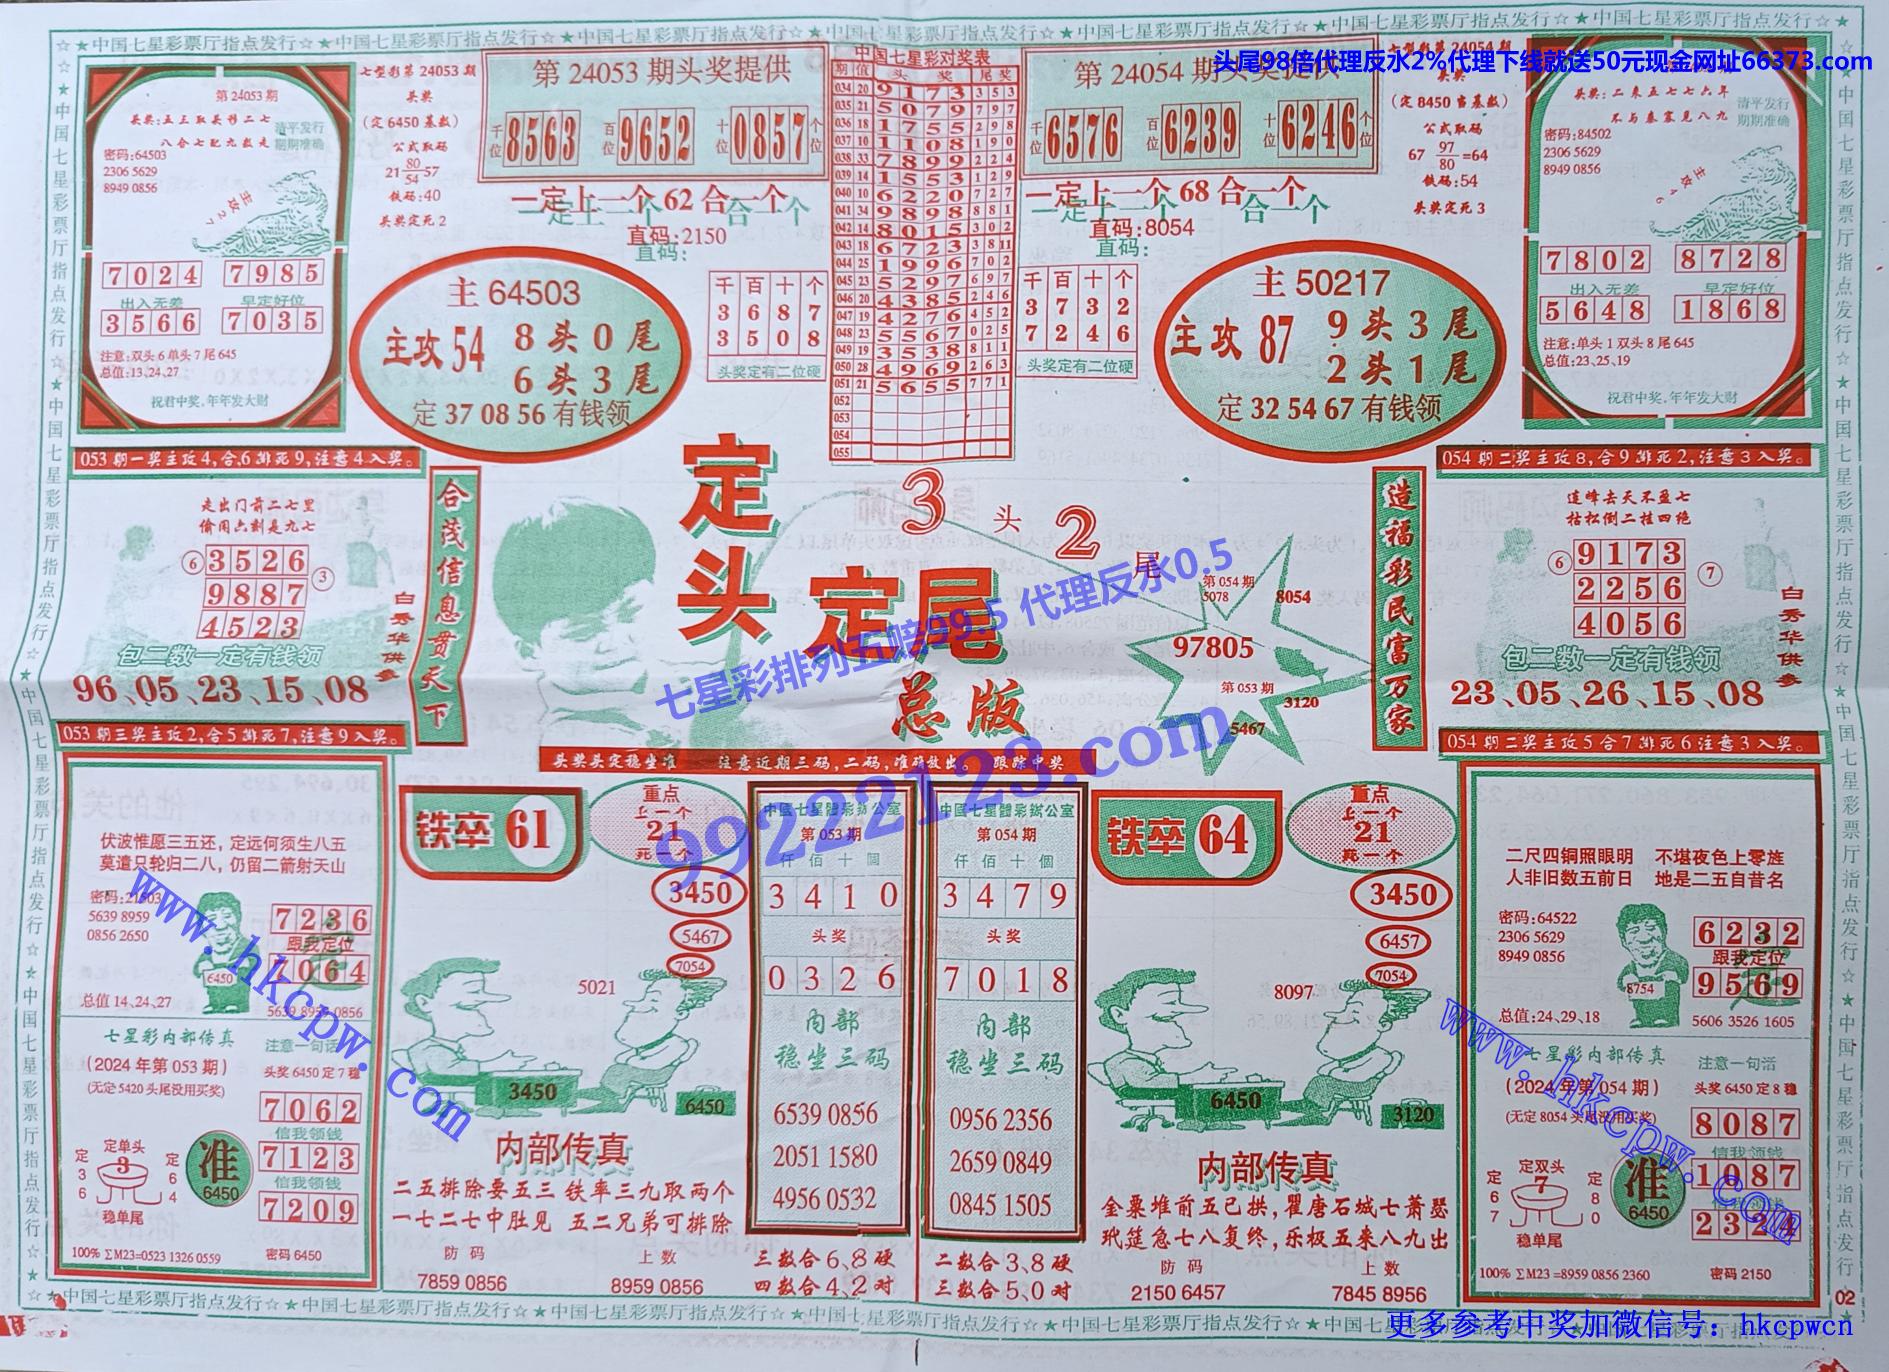 ☆★中国七星彩票厅指点发行☆★中国七星彩票厅指点发行☆★中国七星彩票厅指点发行☆★中国七星彩票厅指点发行☆★中国七星彩票厅指点发行☆★中国七星彩票厅指点发行☆★中国七星彩票厅指点发行☆★
头尾98倍代理反水2%代理下线就送50元现金网址66373.com
第 24053 期
头奖:五三取头形二七
八合七配九数走
清平发行
期期准确
密码:64503
2306 5629
8949 0856
主攻27
7 0 2 4  7 9 8 5
出入无差  早定好位
3 5 6 6  7 0 3 5
注意:双头 6 单头 7 尾 645
总值:13,24,27
祝君中奖,年年发大财
七型彩第 24053 期
头奖
(定 6450 基数)
公式取码
21 80/54 =57
铁码:40
头奖定死 2
第 24053 期头奖提供
千位 8563 百位 9652 十位 0857 个位
一定上一个 62 合一个
直码:2150
主 64503
主攻 54
8 头 0 尾
6 头 3 尾
定 37 08 56 有钱领
千 百 十 个
3 6 8 7
3 5 0 8
头奖定有二位硬
中国七星彩对奖表
期 值 头 奖 尾 奖
034 20 9 1 7 3 3 5 3
035 21 5 0 7 9 7 9 7
036 18 1 7 5 5 2 9 8
037 10 1 1 0 8 1 9 0
038 33 7 8 9 9 2 2 4
039 14 1 5 5 3 1 2 9
040 10 6 2 2 0 7 2 7
041 34 9 8 9 8 8 8 1
042 14 8 0 1 5 3 0 2
043 18 6 7 2 3 3 8 11
044 25 1 9 9 6 7 0 2
045 23 5 2 9 7 6 9 7
046 20 4 3 8 5 2 4 6
047 19 4 2 7 6 4 5 2
048 23 5 5 6 7 0 2 5
049 19 3 5 3 8 8 1 1
050 28 4 9 6 9 2 6 3
051 21 5 6 5 5 7 7 1
052
053
054
055
第 24054 期头奖提供
千位 6576 百位 6239 十位 6246 个位
一定上一个 68 合一个
直码:8054
千 百 十 个
3 7 3 2
7 2 4 6
头奖定有二位硬
主 50217
主攻 87
9 头 3 尾
2 头 1 尾
定 32 54 67 有钱领
七型彩第 24054 期
头奖
(定 8450 当基数)
公式取码
67 97/80 =64
铁码:54
头奖定死 3
头奖:二来五七七六年
不与秦塞见八九
清平发行
期期准确
密码:84502
2306 5629
8949 0856
主攻46
7 8 0 2  8 7 2 8
出入无差  早定好位
5 6 4 8  1 8 6 8
注意:单头 1 双头 8 尾 645
总值:23,25,19
祝君中奖,年年发大财
053 期一奖主攻 4,合,6 排死 9,注意 4 入奖。
走出门前二七里
偷闲六刻是九七
⑥ 3526 ③
9887
4523
包二数一定有钱领
96、05、23、15、08
白秀华供参
合茂信息贯天下
定头定尾
总版
3 头 2 尾
第 054 期
5078
8054
97805
第 053 期
3120
5467
造福彩民富万家
054 期二奖主攻 8,合 9 排死 2,注意 3 入奖。
连峰去天不盈七
枯松倒二挂四绝
⑥ 9173 ⑦
2256
4056
包二数一定有钱领
23、05、26、15、08
白秀华供参
七星彩排列五赔99.5 代理反水0.5
99222123.com
头奖头定稳坐堆 注意近期三码,二码,准确放出。 跟踪中奖
053 期三奖主攻 2,合 5 排死 7,注意 9 入奖。
伏波惟愿三五还,定远何须生八五
莫遣只轮归二八,仍留二箭射天山
密码:21503
5639 8959
0856 2650
6450
7 2 3 6
跟我定位
7 0 6 4
总值 14、24、27
5639 8959 0856
七星彩内部传真
(2024 年第 053 期)
(无定 5420 头尾没用买奖)
注意一句话
头奖 6450 定 7 稳
7 0 6 2
信我领钱
7 1 2 3
信我领钱
7 2 0 9
定单头
3
定 3 6
定 6 4
稳单尾
准
6450
100% ∑M23=0523 1326 0559
密码 6450
铁卒 61
重点
上一个
21
死一个
3450
5467
7054
5021
3450
6450
内部传真
二五排除要五三 铁率三九取两个
一七二七中肚见 五二兄弟可排除
防码
7859 0856
上数
8959 0856
中國七星體彩辦公室
第 053 期
仟 佰 十 個
3 4 1 0
头奖
0 3 2 6
内部
稳坐三码
6539 0856
2051 1580
4956 0532
三数合 6、8 硬
四数合 4、2 对
中國七星體彩辦公室
第 054 期
仟 佰 十 個
3 4 7 9
头奖
7 0 1 8
内部
稳坐三码
0956 2356
2659 0849
0845 1505
二数合 3、8 硬
三数合 5、0 对
铁卒 64
重点
上一个
21
死一个
3450
6457
7054
8097
6450
3120
内部传真
金粟堆前五已拱,瞿唐石城七萧瑟
玳筵急七八复终,乐极五来八九出
防码
2150 6457
上数
7845 8956
054 期二奖主攻 5 合 7 排死 6 注意 3 入奖。
二尺四铜照眼明 不堪夜色上零旌
人非旧数五前日 地是二五自昔名
密码:64522
2306 5629
8949 0856
8754
6 2 3 2
跟我定位
9 5 6 9
总值:24、29、18
5606 3526 1605
七星彩内部传真
(2024 年第 054 期)
(无定 8054 头尾没用买奖)
注意一句话
头奖 6450 定 8 稳
8 0 8 7
信我领钱
1 0 8 7
2 3 2 4
定双头
7
定 6 7
定 8 0
稳单尾
准
6450
100% ∑M23 =8959 0856 2360
密码 2150
www.hkcpw.com
www.hkcpw.com
02
更多参考中奖加微信号：hkcpwcn